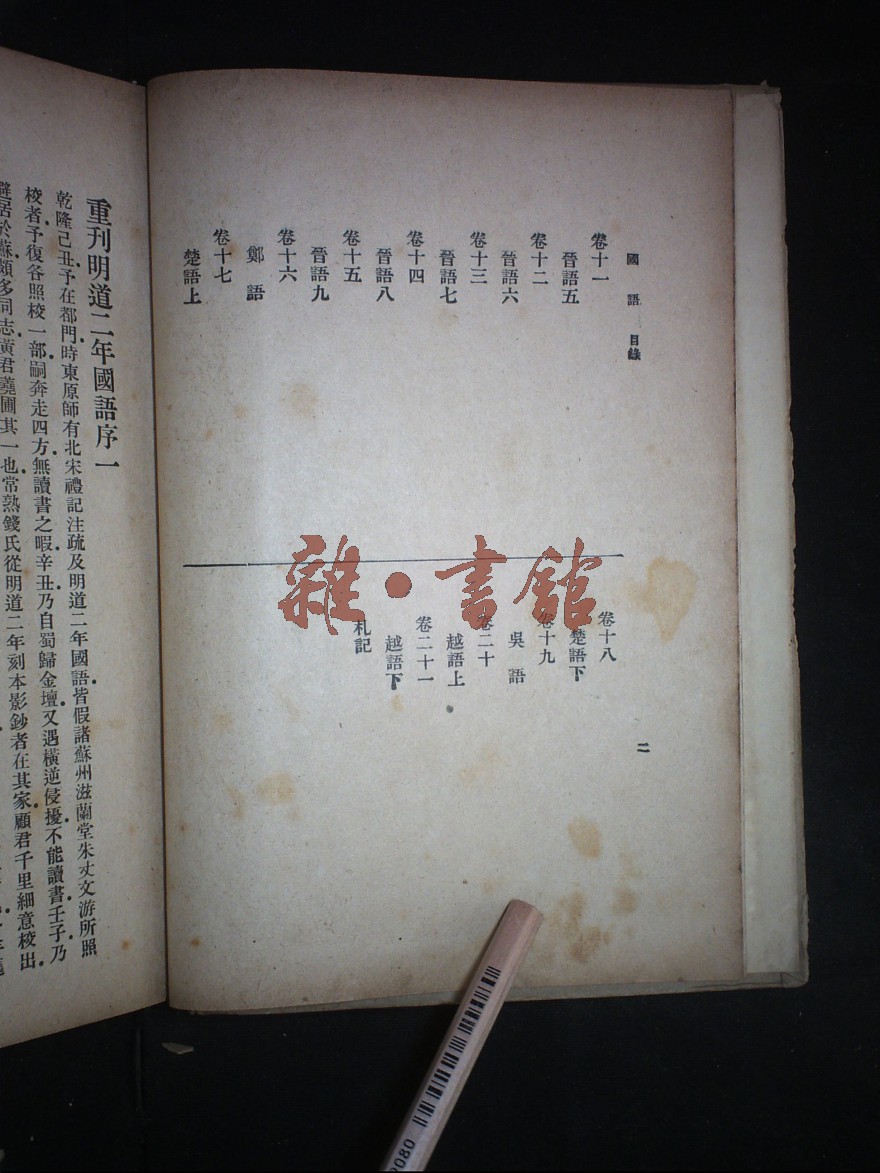 國語 目錄
卷十一
晉語五
卷十二
晉語六
卷十三
晉語七
卷十四
晉語八
卷十五
晉語九
卷十六
鄭語
卷十七
楚語上
卷十八
楚語下
卷十九
吳語
卷二十
越語上
卷二十一
越語下
札記
二
重刊明道二年國語序一
乾隆己丑予在都門時東原師有北宋禮記注疏及明道二年國語皆假諸蘇州滋蘭堂朱丈文游所照
校者予復各照校一部嗣奔走四方無讀書之暇辛丑乃自蜀歸金壇又遇橫逆侵擾不能讀書壬子乃
避居於蘇頗多同志黃君蕘圃其一也常熟錢氏從明道二年刻本影鈔者在其家顧君千里細意校出
雜·書館
2080